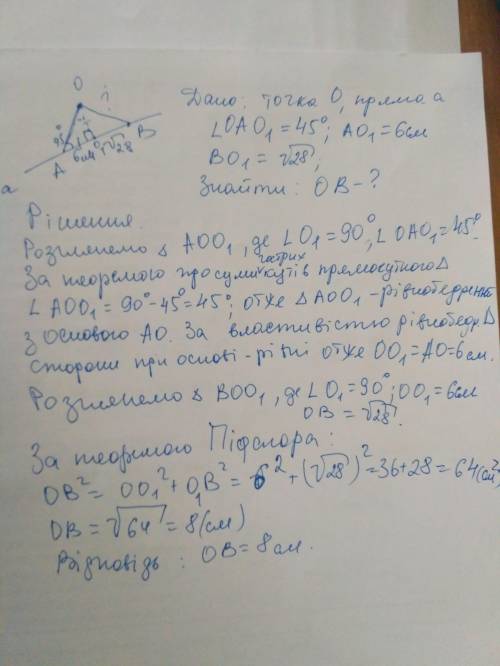 O
?
45°
6см
O₁
√28
A
B
a
Дано: точка O, пряма a
∠OAO₁ = 45°; AO₁ = 6см
BO₁ = √28;
Знайти: OB - ?
Рішення.
Розглянемо Δ AOO₁, де ∠O₁ = 90°, ∠OAO₁ = 45°.
За теоремою про суму гострих кутів прямокутного Δ
∠AOO₁ = 90° - 45° = 45°; отже ΔAOO₁ - рівнобедрений
з основою AO. За властивістю рівнобедр Δ
сторони при основі - рівні отже OO₁ = AO = 6см.
Розглянемо Δ BOO₁, де ∠O₁ = 90°; OO₁ = 6см
OB = √28.
За теоремою Піфагора:
OB² = OO₁² + O₁B² = 6² + (√28)² = 36 + 28 = 64 (см²)
OB = √64 = 8 (см)
Відповідь: OB = 8 см.